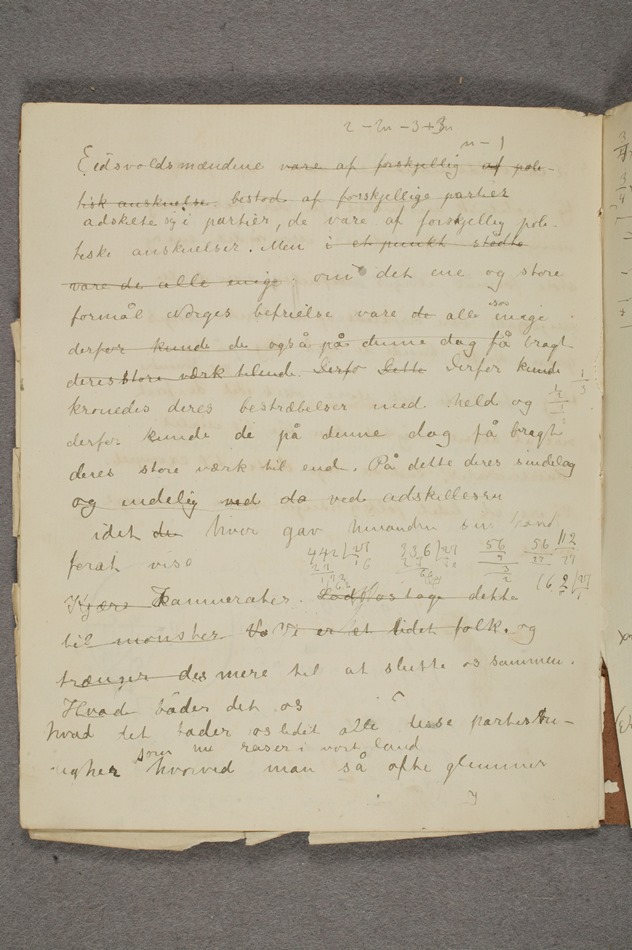 2 - 2n - 3 + 3n
n - 1
Eidsvoldsmændene vare af forskjellig af poli-
tisk anskuelse. bestod af forskjellige partier
adskilte sig i partier, de vare af forskjellig poli-
tiske anskuelser. Men i et punkt stødte
vare de alle enige. om det ene og store
formål Norges befrielse vare de alle enige
derfor kunde de også på denne dag få bragt
deres store værk tilende. Derfo Dette Derfor kunde
kronedes deres bestræbelser med held og
derfor kunde de på denne dag få bragt
deres store værk til ende. På dette deres sindelag
og endelig ved da ved adskillesen
idet de hver gav hinanden sin hånd
forat vise
442 27 236 27 56 9 56 27 112 27
162 27
Kjære Kammerater. Lad os tage dette
til mønster Vi er et lidet folk. og
trænger des mere til at slutte os sammen.
Hvad båder det os
hvad det båder os lidet alle disse partistri-
digher som nu raser i vort land
hvorved man så ofte glemmer